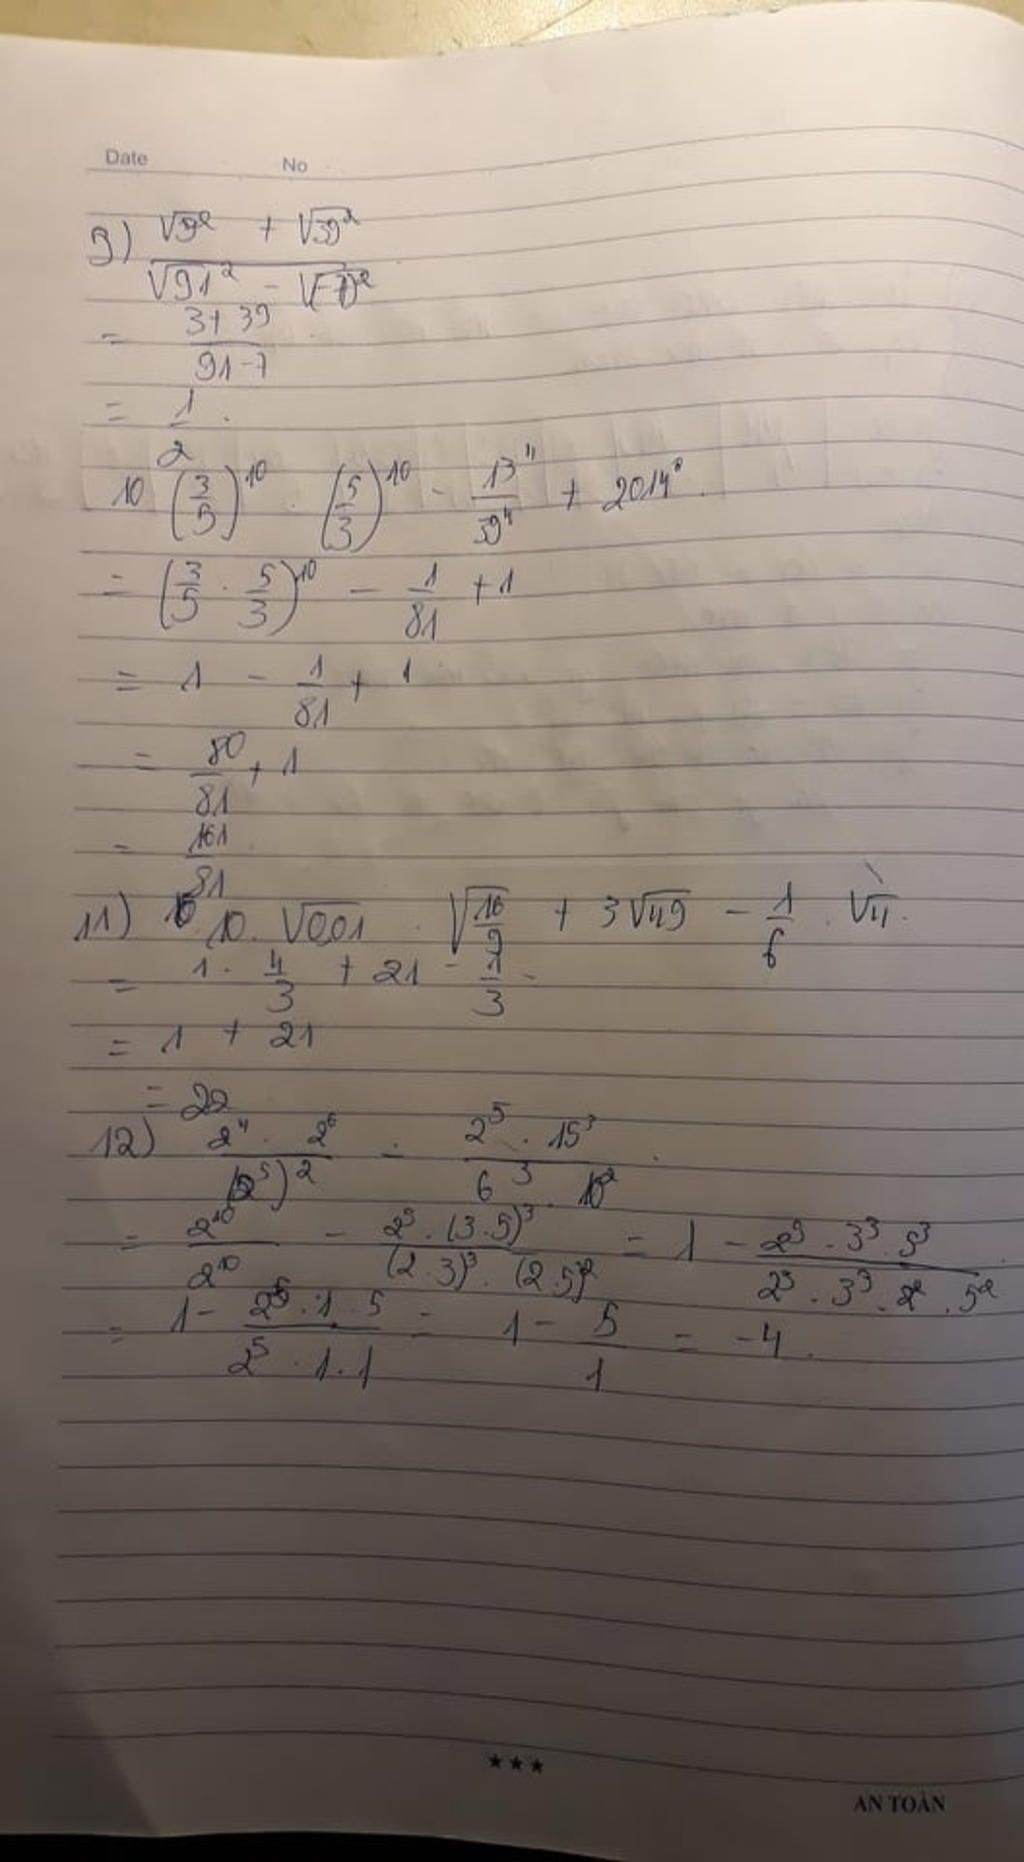 Date No
9) (√3² + √39²)/(√91² - √(-7)²)
= (3+39)/(91-7)
= 1/2.
10 (3/5)^10 . (5/3)^10 - 13⁴/39⁴ + 2014⁰.
= (3/5 . 5/3)^10 - 1/81 + 1
= 1 - 1/81 + 1
= 80/81 + 1
= 161/81.
11) 10. √0,01 . √(16/9) + 3√49 - 1/6 . √4.
= 1. 4/3 + 21 - 1/3
= 1 + 21
= 22
12) (2⁴. 2⁶)/(2⁵)² - (2⁵ . 15³)/(6³ . 10²).
= 2^10/2^10 - (2⁵ . (3.5)³)/((2.3)³ . (2.5)²) = 1 - (2⁵ . 3³ . 5³)/(2³ . 3³ . 2² . 5²)
= 1 - (2⁵ . 1 . 5)/(2⁵ . 1 . 1) = 1 - 5/1 = -4.
★★★
AN TOÀN